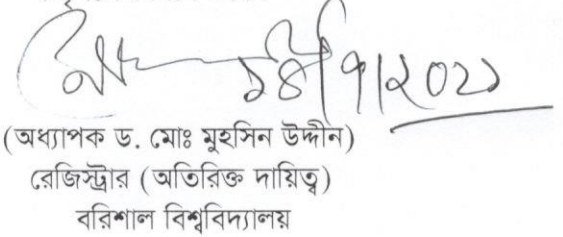 ১৪|৭|২০২১
(অধ্যাপক ড. মোঃ মুহসিন উদ্দীন)
রেজিস্ট্রার (অতিরিক্ত দায়িত্ব)
বরিশাল বিশ্ববিদ্যালয়